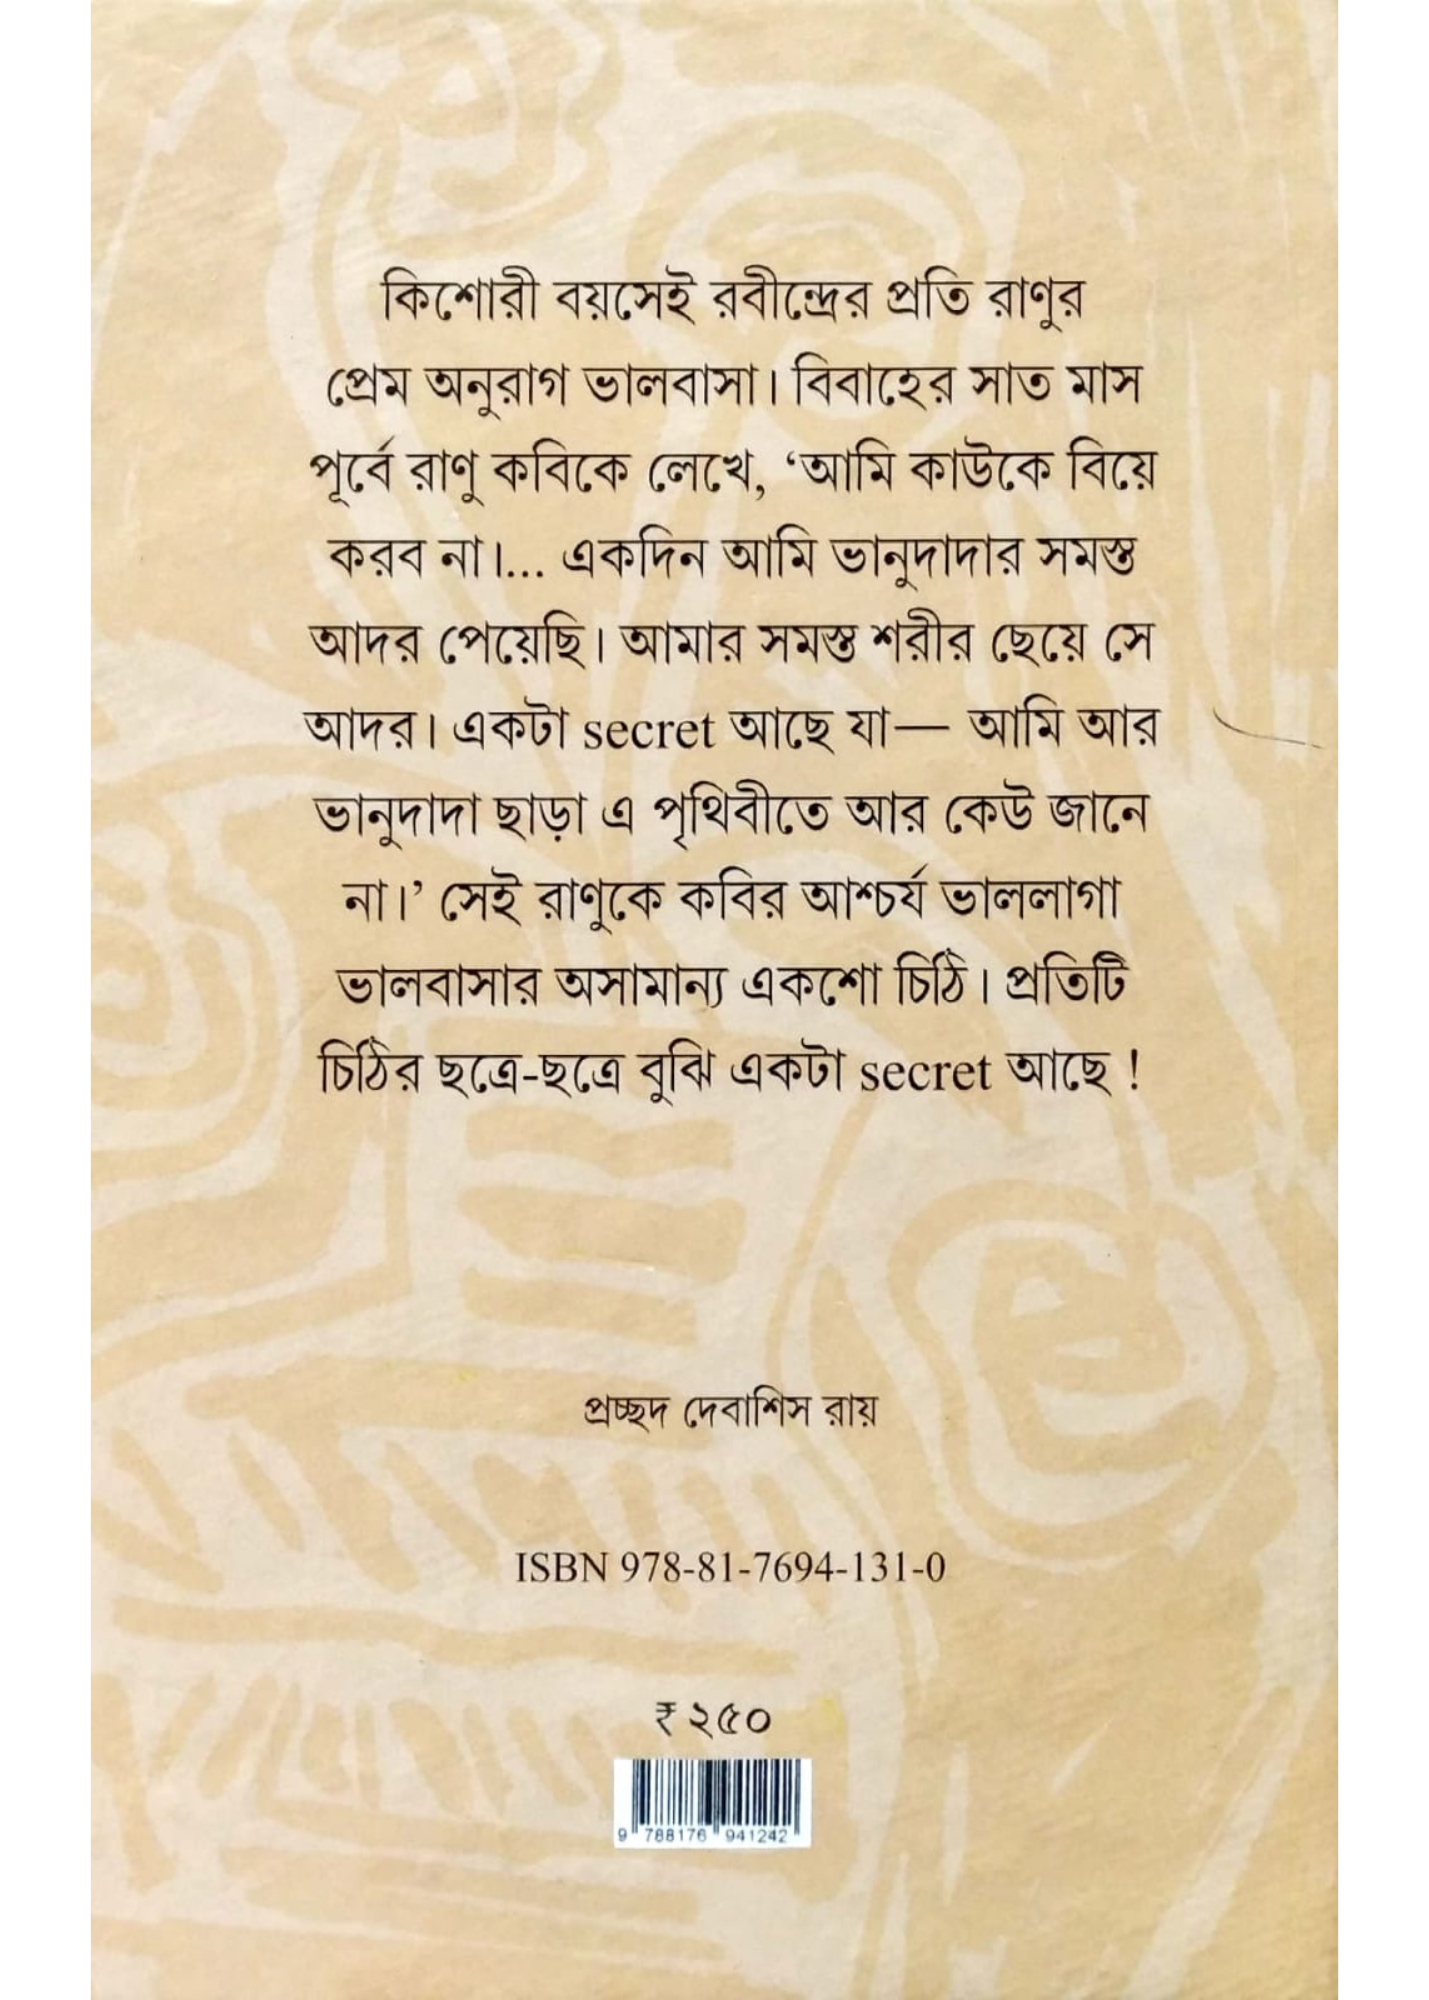 কিশোরী বয়সেই রবীন্দ্রের প্রতি রাণুর
প্রেম অনুরাগ ভালবাসা। বিবাহের সাত মাস
পূর্বে রাণু কবিকে লেখে, ‘আমি কাউকে বিয়ে
করব না।... একদিন আমি ভানুদাদার সমস্ত
আদর পেয়েছি। আমার সমস্ত শরীর ছেয়ে সে
আদর। একটা secret আছে যা— আমি আর
ভানুদাদা ছাড়া এ পৃথিবীতে আর কেউ জানে
না।’ সেই রাণুকে কবির আশ্চর্য ভাললাগা
ভালবাসার অসামান্য একশো চিঠি। প্রতিটি
চিঠির ছত্রে-ছত্রে বুঝি একটা secret আছে !
প্রচ্ছদ দেবাশিস রায়
ISBN 978-81-7694-131-0
₹ ২৫০
9 788176 941242